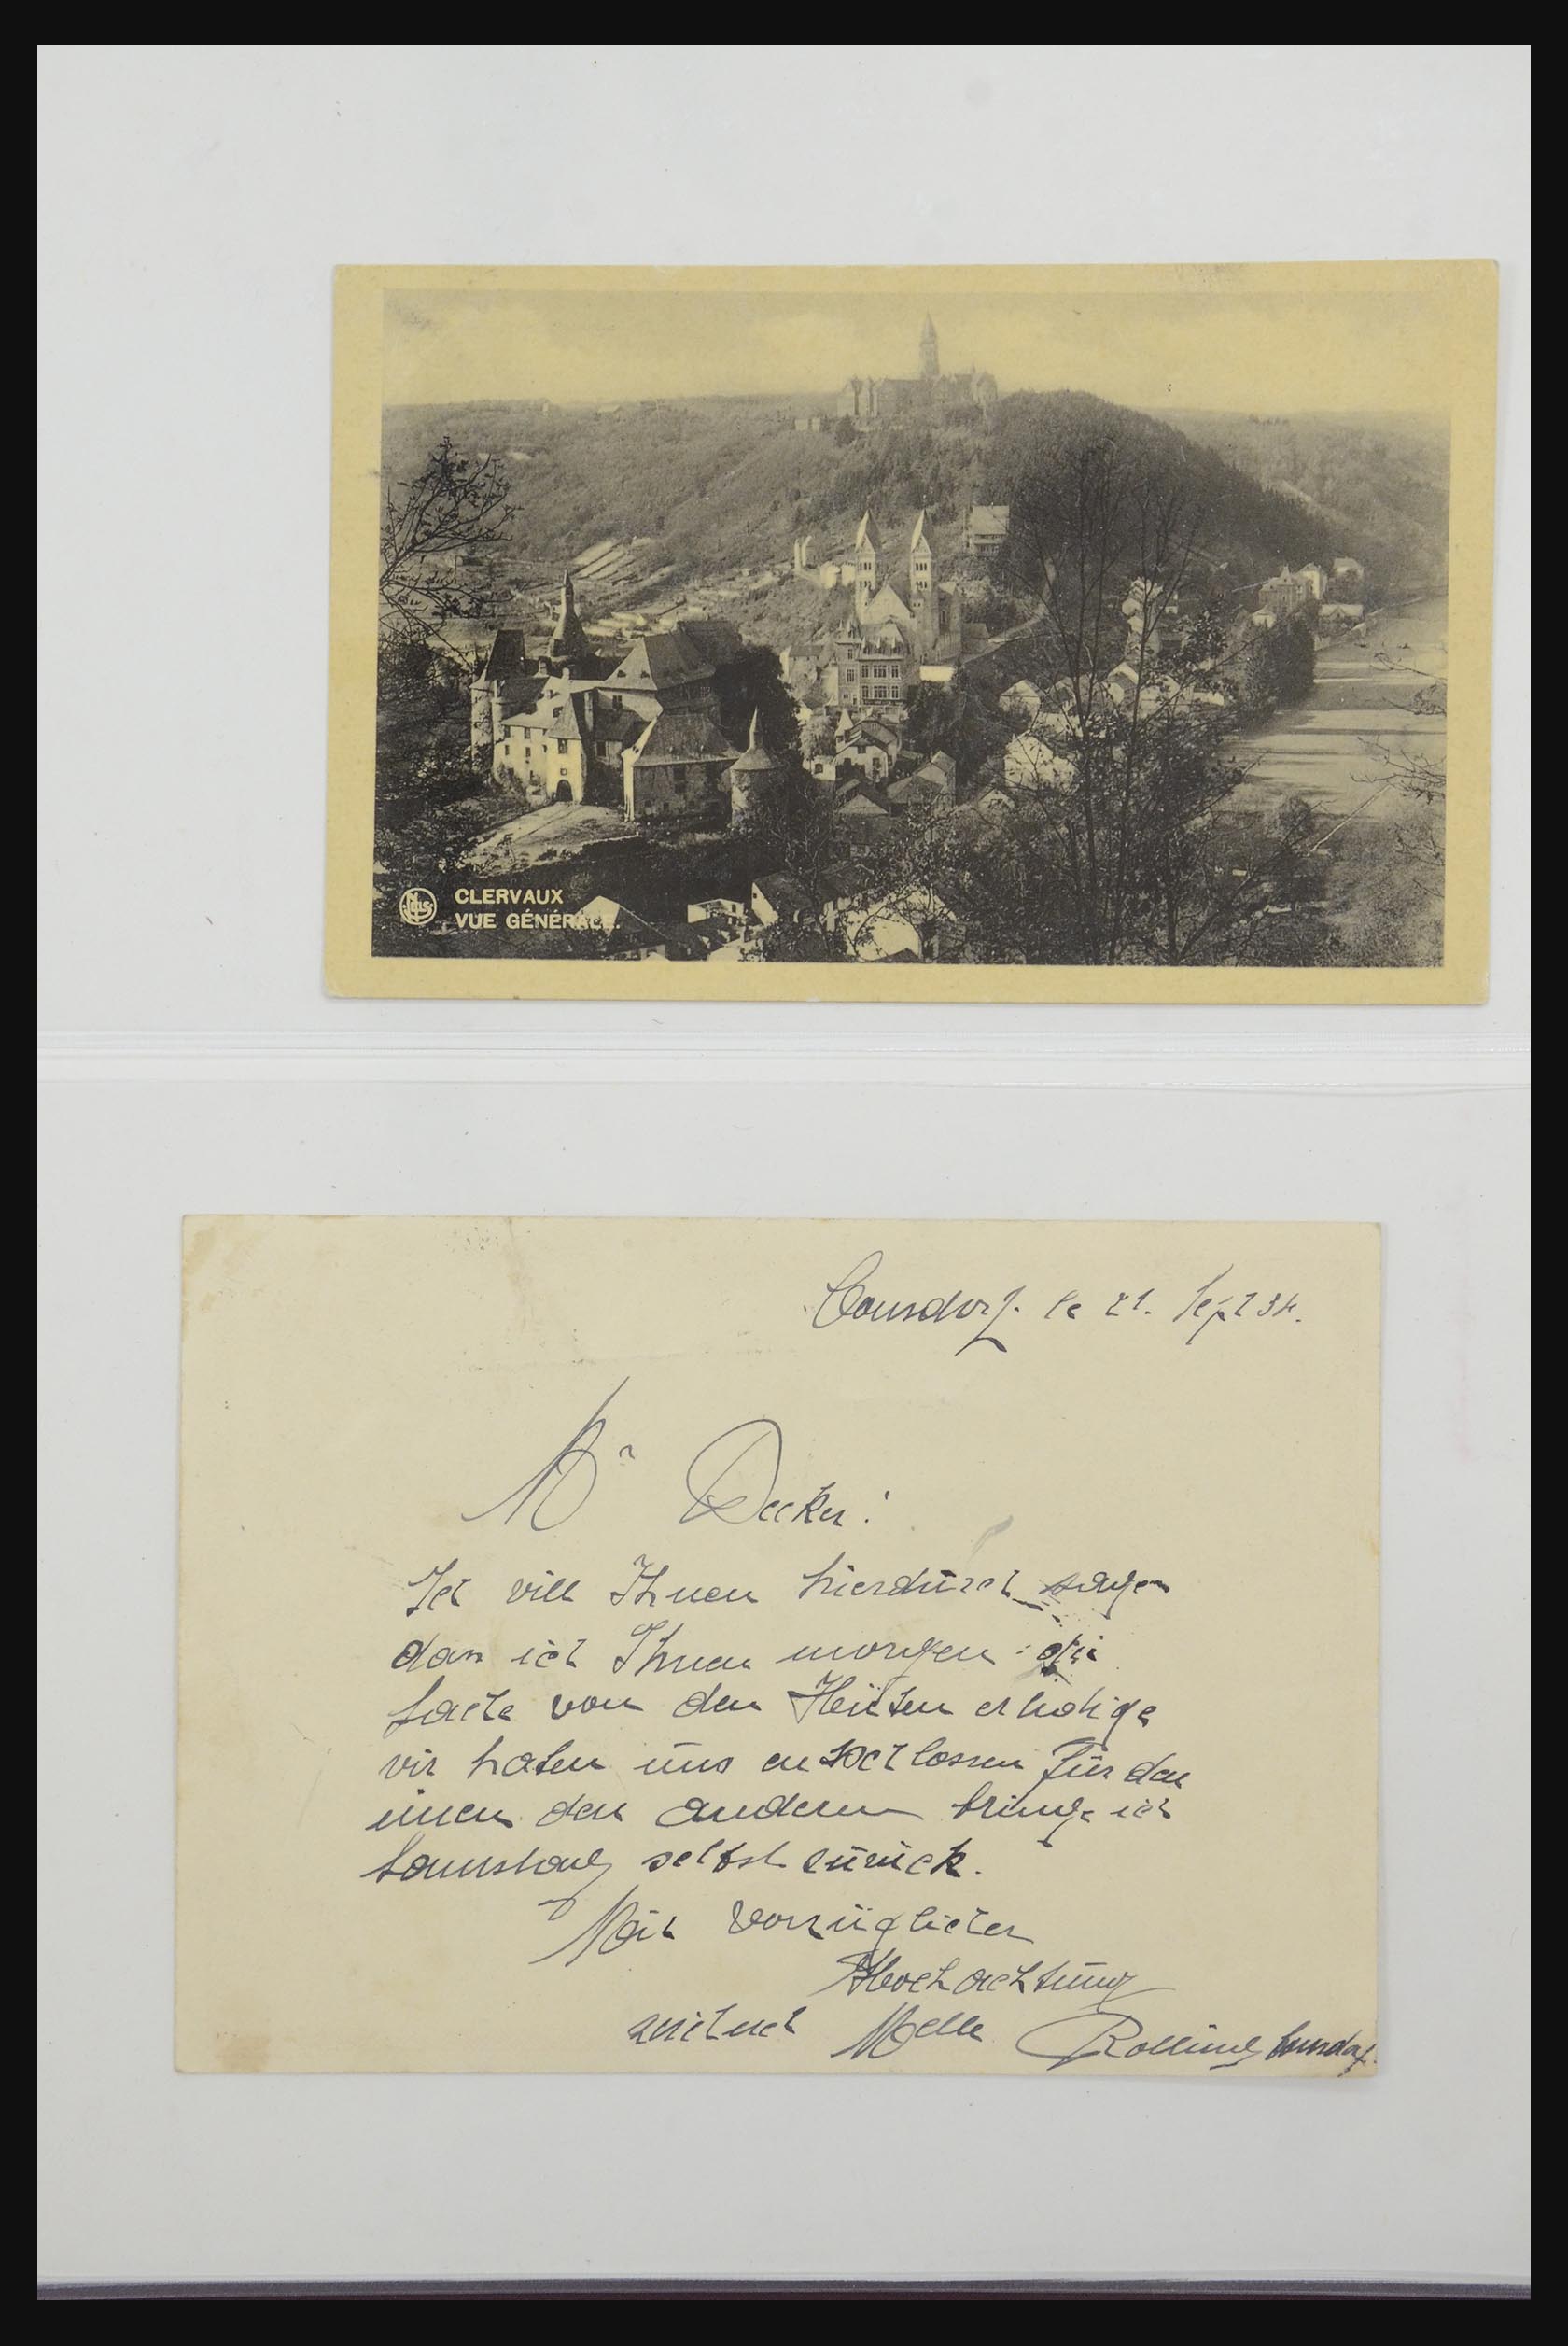 Nels
CLERVAUX
VUE GÉNÉRALE.
Consdorf. le 21. Sept 34.
Mr Decker!
Ich will Ihnen hierdurch sagen
dass ich Ihnen morgen die
Sache von den Heften erledige
wir haben uns entschlossen für den
einen den anderen bringe ich
Samstag selbst zurück.
Mit Vorzüglicher
Hochachtung
zeichnet Melle Rolling Consdorf.